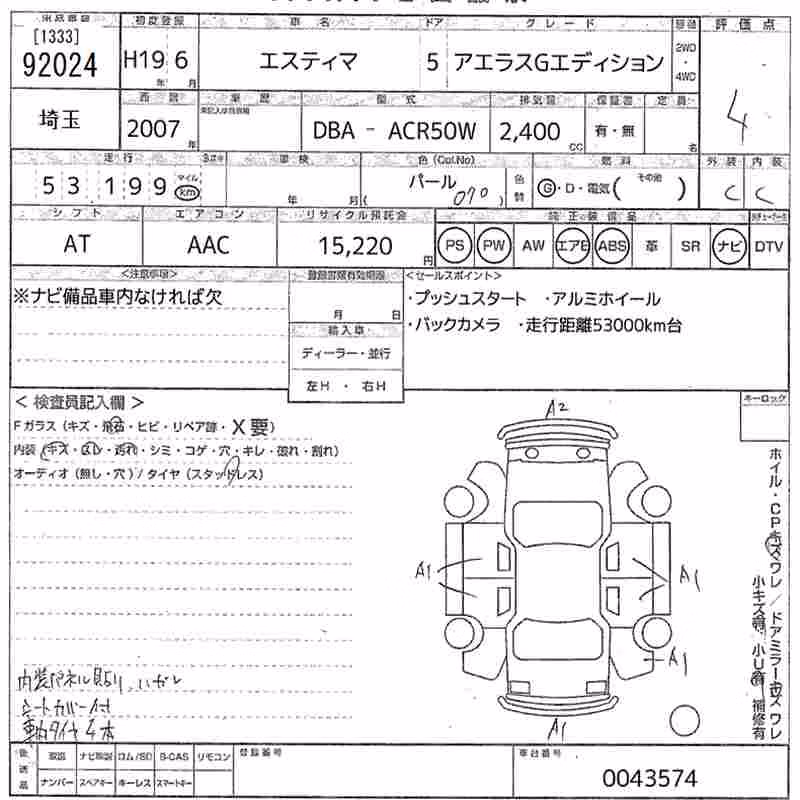 初度登録 車名 ドア グレード 評価点
[1333]
92024 H19 6 エスティマ 5 アエラスGエディション 2WD・4WD 4
年 月
埼玉 2007年 DBA - ACR50W 2,400cc 有・無 名
西暦 車歴 型式 排気量 保証書 定員
走行 車検 色(Col.No) 燃料 外装 内装
53199 マイル km 年 月 パール 070 色替 G・D・電気(その他) C C
シフト エアコン リサイクル預託金 純正装備品
AT AAC 15,220円 PS PW AW エアB ABS 革 SR ナビ DTV
<注意事項> 登録書類有効期限 <セールスポイント>
※ナビ備品車内なければ欠 ・プッシュスタート ・アルミホイール
月 日 ・バックカメラ ・走行距離53000km台
輸入車
ディーラー・並行
左H ・ 右H
<検査員記入欄> キーロック
Fガラス(キズ・飛石・ヒビ・リペア跡・X要)
内装(キズ・スレ・汚れ・シミ・コゲ・穴・キレ・破れ・割れ)
オーディオ(無し・穴)/タイヤ(スタッドレス)
A2
A1 A1
A1
A1
ホイル・CPキズワレ/ドアミラーキズワレ
小キズ有 小U有 補修有
シートカバー付
車内タイヤ4本
後送品 取説 ナビ取説 ロム/SD B-CAS リモコン 登録番号 車台番号
ナンバー スペアキー キーレス スマートキー 0043574